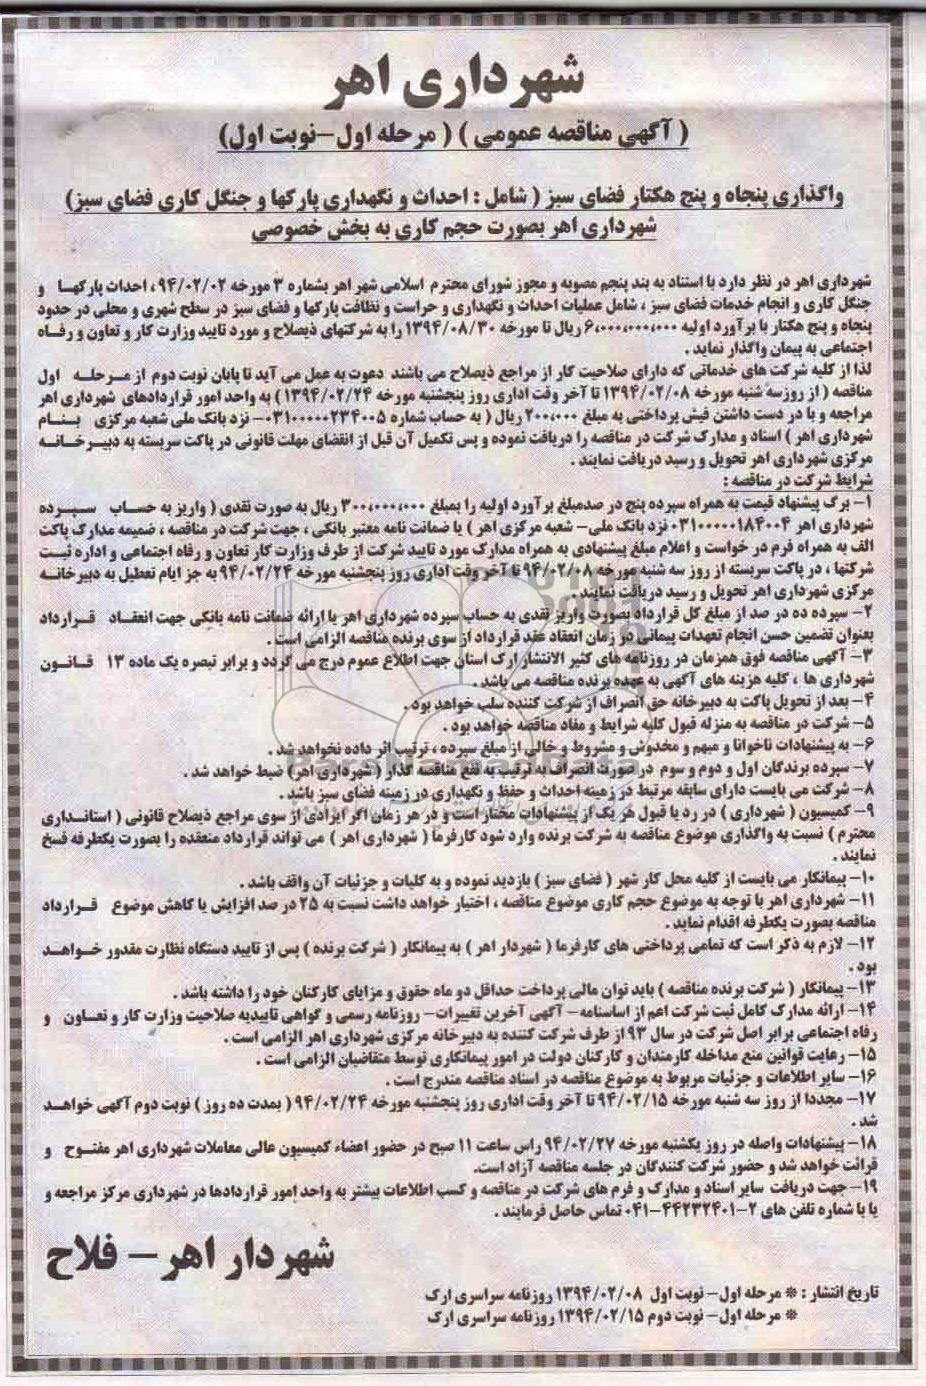 شهرداری اهر
( آگهی مناقصه عمومی ) ( مرحله اول-نوبت اول)
واگذاری پنجاه و پنج هکتار فضای سبز ( شامل : احداث و نگهداری پارکها و جنگل کاری فضای سبز)
شهرداری اهر بصورت حجم کاری به بخش خصوصی
شهرداری اهر در نظر دارد با استناد به بند پنجم مصوبه و مجوز شورای محترم اسلامی شهر اهر بشماره ۳ مورخه ۹۴/۰۲/۰۲ ، احداث پارکها و
جنگل کاری و انجام خدمات فضای سبز ، شامل عملیات احداث و نگهداری و حراست و نظافت پارکها و فضای سبز در سطح شهری و محلی در حدود
پنجاه و پنج هکتار با برآورد اولیه ۶,۰۰۰,۰۰۰,۰۰۰ ریال تا مورخه ۱۳۹۴/۰۸/۳۰ را به شرکتهای ذیصلاح و مورد تایید وزارت کار و تعاون و رفاه
اجتماعی به پیمان واگذار نماید .
لذا از کلیه شرکت های خدماتی که دارای صلاحیت کار از مراجع ذیصلاح می باشند دعوت به عمل می آید تا پایان نوبت دوم از مرحله اول
مناقصه ( از روز سه شنبه مورخه ۱۳۹۴/۰۲/۰۸ تا آخر وقت اداری روز پنجشنبه مورخه ۱۳۹۴/۰۲/۲۴ ) به واحد امور قراردادهای شهرداری اهر
مراجعه و با در دست داشتن فیش پرداختی به مبلغ ۲۰۰,۰۰۰ ریال ( به حساب شماره ۰۳۱۰۰۰۰۰۲۳۴۰۰۵- نزد بانک ملی شعبه مرکزی بنام
شهرداری اهر ) اسناد و مدارک شرکت در مناقصه را دریافت نموده و پس تکمیل آن قبل از انقضای مهلت قانونی در پاکت سربسته به دبیرخانه
مرکزی شهرداری اهر تحویل و رسید دریافت نمایند .
شرایط شرکت در مناقصه :
۱- برگ پیشنهاد قیمت به همراه سپرده پنج در صدمبلغ برآورد اولیه را بمبلغ ۳۰۰,۰۰۰,۰۰۰ ریال به صورت نقدی ( واریز به حساب سپرده
شهرداری اهر ۰۳۱۰۰۰۰۰۱۸۴۰۰۴ نزد بانک ملی- شعبه مرکزی اهر ) یا ضمانت نامه معتبر بانکی ، جهت شرکت در مناقصه ، ضمیمه مدارک پاکت
الف به همراه فرم در خواست و اعلام مبلغ پیشنهادی به همراه مدارک مورد تایید شرکت از طرف وزارت کار تعاون و رفاه اجتماعی و اداره ثبت
شرکتها ، در پاکت سربسته از روز سه شنبه مورخه ۹۴/۰۲/۰۸ تا آخر وقت اداری روز پنجشنبه مورخه ۹۴/۰۲/۲۴ به جز ایام تعطیل به دبیرخانه
مرکزی شهرداری اهر تحویل و رسید دریافت نمایند .
۲- سپرده ده در صد از مبلغ کل قرارداد بصورت واریز نقدی به حساب سپرده شهرداری اهر یا ارائه ضمانت نامه بانکی جهت انعقاد قرارداد
بعنوان تضمین حسن انجام تعهدات پیمانی در زمان انعقاد عقد قرارداد از سوی برنده مناقصه الزامی است .
۳- آگهی مناقصه فوق همزمان در روزنامه های کثیر الانتشار ارک استان جهت اطلاع عموم درج می گردد و برابر تبصره یک ماده ۱۳ قانون
شهرداری ها ، کلیه هزینه های آگهی به عهده برنده مناقصه می باشد .
۴- بعد از تحویل پاکت به دبیرخانه حق انصراف از شرکت کننده سلب خواهد بود .
۵- شرکت در مناقصه به منزله قبول کلیه شرایط و مفاد مناقصه خواهد بود .
۶- به پیشنهادات ناخوانا و مبهم و مخدوش و مشروط و خالی از مبلغ سپرده ، ترتیب اثر داده نخواهد شد .
۷- سپرده برندگان اول و دوم و سوم در صورت انصراف به ترتیب به نفع مناقصه گذار ( شهرداری اهر) ضبط خواهد شد .
۸- شرکت می بایست دارای سابقه مرتبط در زمینه احداث و حفظ و نگهداری در زمینه فضای سبز باشد .
۹- کمیسیون ( شهرداری ) در رد یا قبول هر یک از پیشنهادات مختار است و در هر زمان اگر ایرادی از سوی مراجع ذیصلاح قانونی ( استانداری
محترم ) نسبت به واگذاری موضوع مناقصه به شرکت برنده وارد شود کارفرما ( شهرداری اهر ) می تواند قرارداد منعقده را بصورت یکطرفه فسخ
نمایند .
۱۰- پیمانکار می بایست از کلیه محل کار شهر ( فضای سبز ) بازدید نموده و به کلیات و جزئیات آن واقف باشد .
۱۱- شهرداری اهر با توجه به موضوع حجم کاری موضوع مناقصه ، اختیار خواهد داشت نسبت به ۲۵ در صد افزایش یا کاهش موضوع قرارداد
مناقصه بصورت یکطرفه اقدام نماید .
۱۲- لازم به ذکر است که تمامی پرداختی های کارفرما ( شهردار اهر ) به پیمانکار ( شرکت برنده ) پس از تایید دستگاه نظارت مقدور خواهد
بود .
۱۳- پیمانکار ( شرکت برنده مناقصه ) باید توان مالی پرداخت حداقل دو ماه حقوق و مزایای کارکنان خود را داشته باشد .
۱۴- ارائه مدارک کامل ثبت شرکت اعم از اساسنامه- آگهی آخرین تغییرات- روزنامه رسمی و گواهی تاییدیه صلاحیت وزارت کار و تعاون و
رفاه اجتماعی برابر اصل شرکت در سال ۹۳ از طرف شرکت کننده به دبیرخانه مرکزی شهرداری اهر الزامی است .
۱۵- رعایت قوانین منع مداخله کارمندان و کارکنان دولت در امور پیمانکاری توسط متقاضیان الزامی است .
۱۶- سایر اطلاعات و جزئیات مربوط به موضوع مناقصه در اسناد مناقصه مندرج است .
۱۷- مجددا از روز سه شنبه مورخه ۹۴/۰۲/۱۵ تا آخر وقت اداری روز پنجشنبه مورخه ۹۴/۰۲/۲۴ ( بمدت ده روز ) نوبت دوم آگهی خواهد
شد .
۱۸- پیشنهادات واصله در روز یکشنبه مورخه ۹۴/۰۲/۲۷ راس ساعت ۱۱ صبح در حضور اعضاء کمیسیون عالی معاملات شهرداری اهر مفتوح و
قرائت خواهد شد و حضور شرکت کنندگان در جلسه مناقصه آزاد است.
۱۹- جهت دریافت سایر اسناد و مدارک و فرم های شرکت در مناقصه و کسب اطلاعات بیشتر به واحد امور قراردادها در شهرداری مرکز مراجعه و
یا با شماره تلفن های ۲-۰۴۱-۴۴۲۳۲۴۰۱ تماس حاصل فرمایند .
شهردار اهر - فلاح
تاریخ انتشار : * مرحله اول- نوبت اول ۱۳۹۴/۰۲/۰۸ روزنامه سراسری ارک
* مرحله اول- نوبت دوم ۱۳۹۴/۰۲/۱۵ روزنامه سراسری ارک